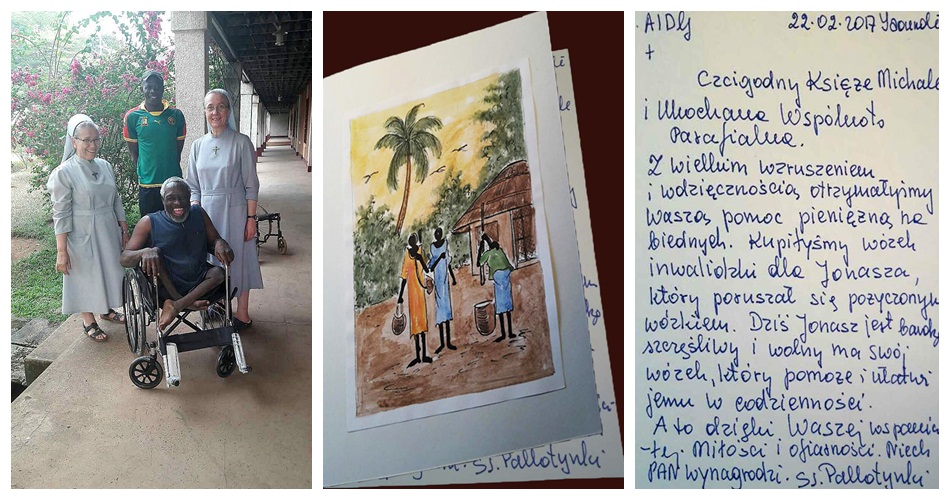 Ss. Pallotynki
AIDG 22.02.2017
+
Czcigodny Księże Michale
i Ukochana Wspólnoto
Parafialna.
Z wielkim wzruszeniem
i wdzięcznością otrzymałyśmy
Waszą pomoc pieniężną na
biednych. Kupiłyśmy wózek
inwalidzki dla Jonasza,
który poruszał się pożyczonym
wózkiem. Dziś Jonasz jest bardzo
szczęśliwy i wolny ma swój
wózek, który pomoże i ułatwi
jemu w codzienności.
A to dzięki Waszej
-tej Miłości i ofiarności. Niech
PAN wynagrodzi. Ss. Pallotynki